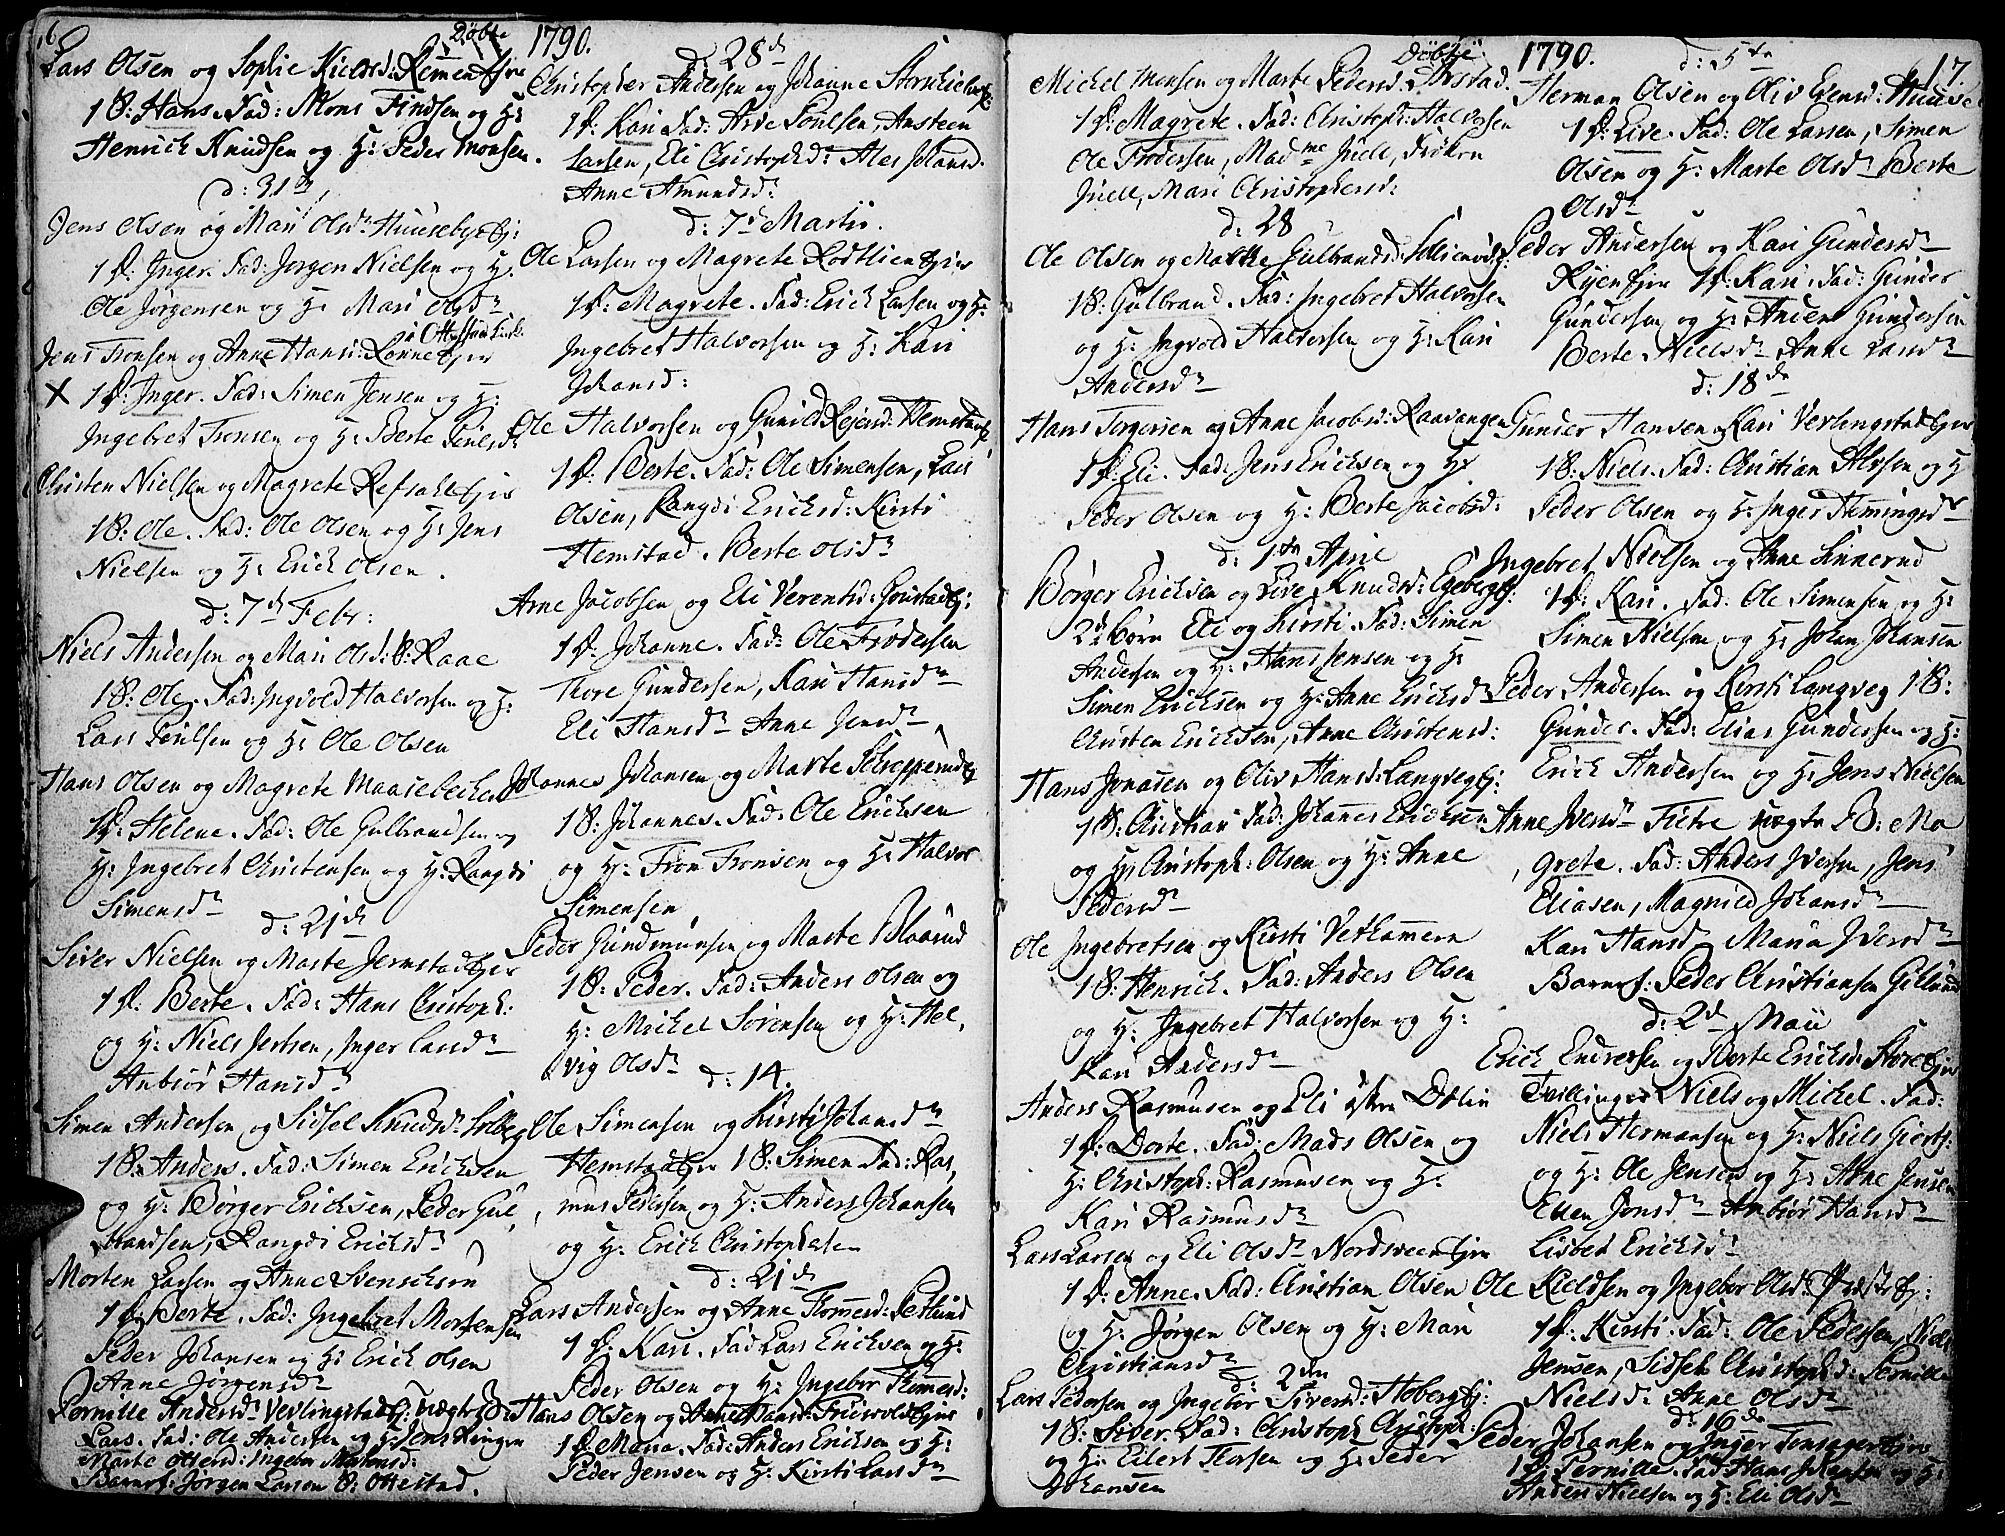 16
Döbte 1790.
Lars Olsen og Sophie Kields d: Remen Ejer
1 B: Hans. Fad: Mons Findsen og H:
Henrich Knudsen og H: Peder Monsen.
d: 31te
Jens Olsen og Mari Olsdr Huusebye Ej:
1 P: Inger. Fad: Jørgen Nielsen og H:
Ole Jørgensen og H: Mari Olsdr
i Ottestad Kirke
Jens Tronsen og Anne Hansd: Rønne Ejer
X 1 P: Inger. Fad: Simen Jensen og H:
Ingebret Tronsen og H: Berte
Christen Nielsen og Magrete Refsahl Ejer
1 B: Ole. Fad: Ole Olsen og H: Jens
Nielsen og H: Erich Olsen.
d: 7d Febr:
Niels Andersen og Mari Olsd: B: Raae
1 B: Ole. Fad: Ingvold Halvorsen og H:
Lars Poulsen og H: Ole Olsen
Hans Olsen og Magrete
1 P: Helene. Fad: Ole Gulbrandsen og
H: Ingebret Christensen og H: Rangdi
Simensdr
d: 21d
Siver Nielsen og Marte Jermstad Ejer
1 P: Berte. Fad: Hans Christoph:
og H: Niels Jertsen, Inger Larsdr
Anbiør Hansdr
Simen Andersen og Sidsel Knudsdr Solberg
1 B: Anders. Fad: Simen Ericksen
og H: Børger Ericksen, Peder Gul
brandsen, Rangdi Ericksdr
Morten Larsen og Anne
1 P: Berte. Fad: Ingebret Mortensen
Peder Johansen og H: Erich Olsen
Anne Jørgensdr
Pernille Andersdr Verlingstad Ej: uægte
Lars. Fad: Ole Andersen og H: Jens Ringen
Marte Olsensd: Ingebor
Barnef: Jørgen Larsen B: Ottestad.
d: 28d
Christopher Andersen og Johanne
1 P: Kari Fad: Arve Poulsen, Ansteen
Larsen, Eli Christophd: Ales Johansd.
Anne Amundsd:
d: 7d Martii.
Ole Larsen og Magrete Rødtlien Ejer
1 P: Magrete. Fad: Erich Larsen og H:
Ingebret Halvorsen og H: Kari
Johansd:
Ole Halvorsen og Gunild Reiersd: Hemstad
1 P: Berte. Fad: Ole Simensen, Lars
Olsen, Rangdi Ericksd: Kirsti
Hemstad. Berte Olsdr
Arne Jacobsen og Eli Verentsd:
1 P: Johanne. Fad: Ole Frodersen
Thore Gundersen, Kari Hansdr
Eli Hansdr Anne Jensdr
Johannes Johansen og Marte
1 B: Johannes. Fad: Ole Ericksen
og H: Tron Tronsen og H: Halvor
Simensen
Peder Gundmunsen og Marte Blaarud
1 B: Peder. Fad: Anders Olsen og
H: Michel Sørensen og H: Hel,
vig Olsdr
d: 14.
Ole Simensen og Kirsti Johansdr
Hemstad Ejer 1 B: Simen Fad: Ras,
mus Pedersen og H: Anders Johansen
og H: Erich Christophersen
d: 21d
Lars Andersen og Anne Thommesd: Petlund
1 P: Kari. Fad Lars Ericksen og H:
Peder Olsen og H: Ingebor Thommesd:
Hans Olsen og Anne Hansd: Friisvold Ejer
1 P: Maria. Fad: Anders Ericksen og H:
Peder Jensen og H: Kirsti Larsdr
Döbte 1790.
17.
Michel Monsen og Marte Pedersd: Arstad.
1 P: Magrete. Fad: Christoph: Halvorsen
Ole Frodersen, Madme Juell, Frøken
Juell, Mari Christophersd:
d: 28
Ole Olsen og Marthe Gulbrandsd:
1 B: Gulbrand. Fad: Ingebret Halvorsen
og H: Ingvold Halvorsen og H: Kari
Andersdr
Hans Torgersen og Anne Jacobsd: Raavangen
1 P: Eli. Fad: Jens Ericksen og H:
Peder Olsen og H: Berte Jacobsd:
d: 1te April
Børger Ericksen og Live Knudsd: Egeberg Ej:
2 børn Eli og Kirsti. Fad: Simen
Andersen og H: Hans Jensen og H:
Simen Ericksen og H: Anne Ericksdr
Christen Ericksen, Anne Christensd:
Hans Jonasen og Oliv Hansd: Langveg Ej:
1 B: Christian Fad: Johannes Ericksen
og H: Christoph: Olsen og H: Anne
Pedersdr
Ole Ingebretsen og Kirsti Vethammern
1 B: Henrich. Fad: Anders Olsen
og H: Ingebret Halvorsen og H:
Kari Andersdr
Anders Rasmusen og Eli østre Dahlin
1 P: Dorte. Fad: Mads Olsen og
H: Christoph: Rasmusen og H:
Kari Rasmusdr
Lars Larsen og Eli Olsdr Nordsveen Ejer
1 P: Anne. Fad: Christian Olsen
og H: Jørgen Olsen og H: Mari
Christiansdr
d: 2den
Lars Pedersen og Ingebor Siversd: Hoberg Ej:
1 B: Siver. Fad: Christoph Christoph:
og H: Eilert Thorsen og H: Peder
Johansen
d: 5te
Herman Olsen og Oliv Evensd: Huuse
1 P: Live. Fad: Ole Larsen, Simen
Olsen og H: Marte Olsdr Berte
Olsdr
Peder Andersen og Kari Gundersdr
Ryen Ejer 1 P: Kari. Fad: Gunder
Gundersen og H: Anders Gundersen
Berte Nielsdr Anne Larsdr
d: 18de
Gunder Hansen og Kari Verlingstad Ejer
1 B: Niels. Fad: Christian Alfsen og H
Peder Olsen og H: Inger Hemingsdr
Ingebret Nielsen og Anne Linnerud
1 P: Kari. Fad: Ole Simensen og H:
Simen Nielsen og H: Johan Johansen
Peder Andersen og Kirsti Langveg 1 B:
Gunder. Fad: Elias Gundersen og H:
Erich Andersen og H: Jens Nielsen
Anne Iversdr Fietre uægte B: Ma
grete. Fad: Anders Iversen, Jens
Eliasen, Magnild Johansdr
Kari Hansdr Maria Iversdr
Barnef: Peder Christiansen Gillund
d: 2d Maii
Erich Endresen og Berte Ericksd: Støre Ejer
Tvillinger Niels og Michel. Fad:
Niels Hermansen og H: Niels Gierts:
og H: Ole Jensen og H: Arne Jensen
Ellen Jonsdr Anbiør Hansdr
Lisbet Ericksdr
Ole Kieldsen og Ingebor Olsdr Præste Ej:
1 P: Kirsti. Fad: Ole Pedersen, Niels
Jensen, Sidsel Christophd: Pernille
Nielsd: Anne Olsdr
d: 16de
Peder Johansen og Inger Tonsager Ejer
1 P: Pernille. Fad: Hans Johansen og H:
Anders Nielsen og H: Eli Olsdr